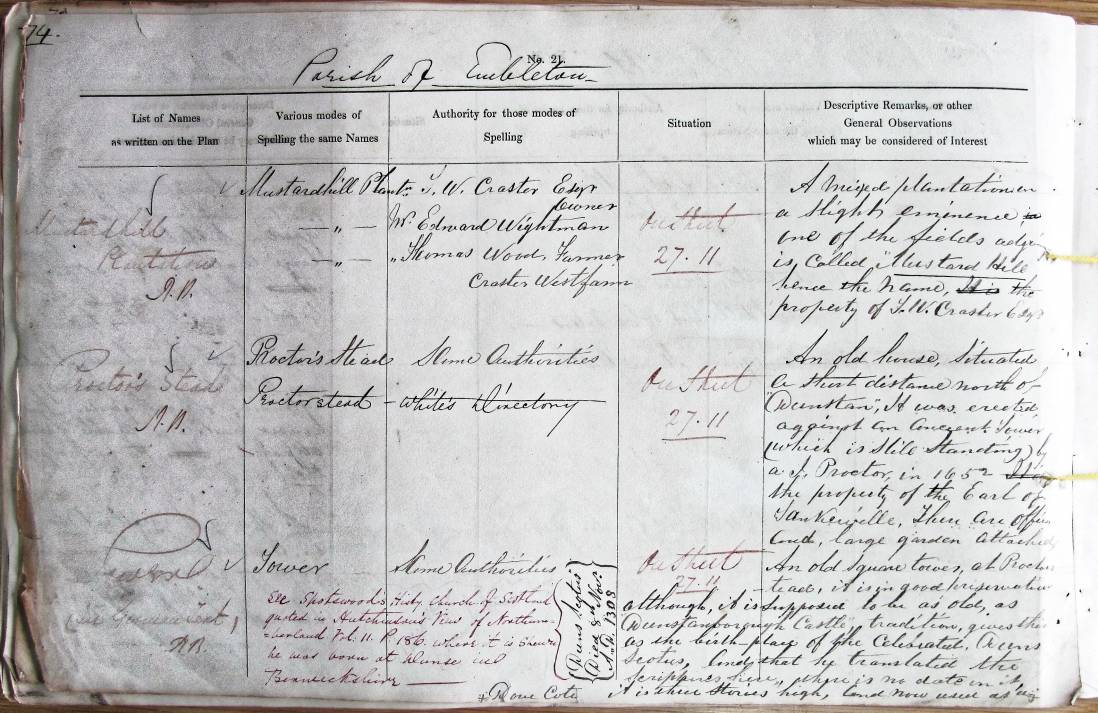 74.
No. 21.
Parish of Embleton
List of Names
as written on the Plan
Various modes of
Spelling the same Names
Authority for those modes of
Spelling
Situation
Descriptive Remarks, or other
General Observations
which may be considered of Interest
Mustardhill
Plantation
Mustardhill Plantn.
— „ —
— „ —
T. W. Craster Esqr
Owner
Mr. Edward Wightman
„ Thomas Wood, Farmer
Craster Westfarm
On Sheet
27.11
A mixed plantation on
a slight eminence in
one of the fields adjg
is, Called "Mustard Hill
hence the Name, It is the
property of T.W. Craster Esqr
Proctor's Stead
Proctor's Stead
Proctorstead
Same Authorities
White's Directory
On Sheet
27.11
An old house, Situated
a Short distance north of
"Dunstan", It was erected
against an Ancient Tower
(which is Still Standing) by
a J. Proctor, in 1652
the property of the Earl of
Tankerville, There are
and, large garden attached
Tower
Same Authorities
On Sheet
27.11
An old Square tower, at
it, is in good
although, it is supposed to be as old, as
Dunstanborough Castle", tradition, gives this
as the birth place of the Celebrated, Duns
Scotus, and that he translated the
scriptures here, there is no date on it,
it is three Stories high, and now used as
See Spotswood's Histy. Church of Scotland
quoted in Hutchinsons View of Northum-
-berland Vol. 11. P. 186. where it is shewn
he was born at Dunse in
Berwickshire
Duns Scotus
Died 8th Novr.
A.D. 1308
Dove Cote